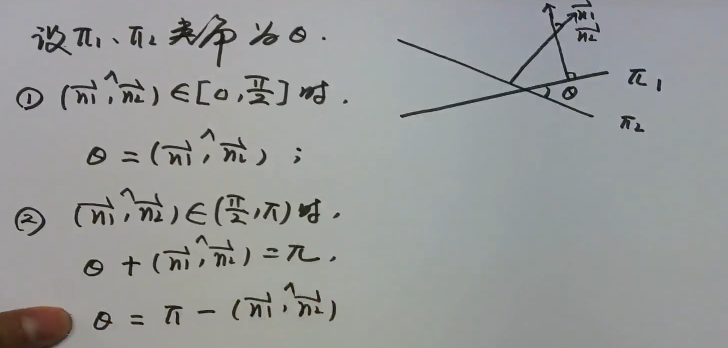 设π₁、π₂夹角为θ.
① (n₁→^n₂→)∈[0,π/2]时.
θ=(n₁→^n₂→);
② (n₁→^n₂→)∈(π/2,π)时,
θ+(n₁→^n₂→)=π.
θ=π-(n₁→^n₂→)
n₁→
n₂→
π₁
θ
π₂